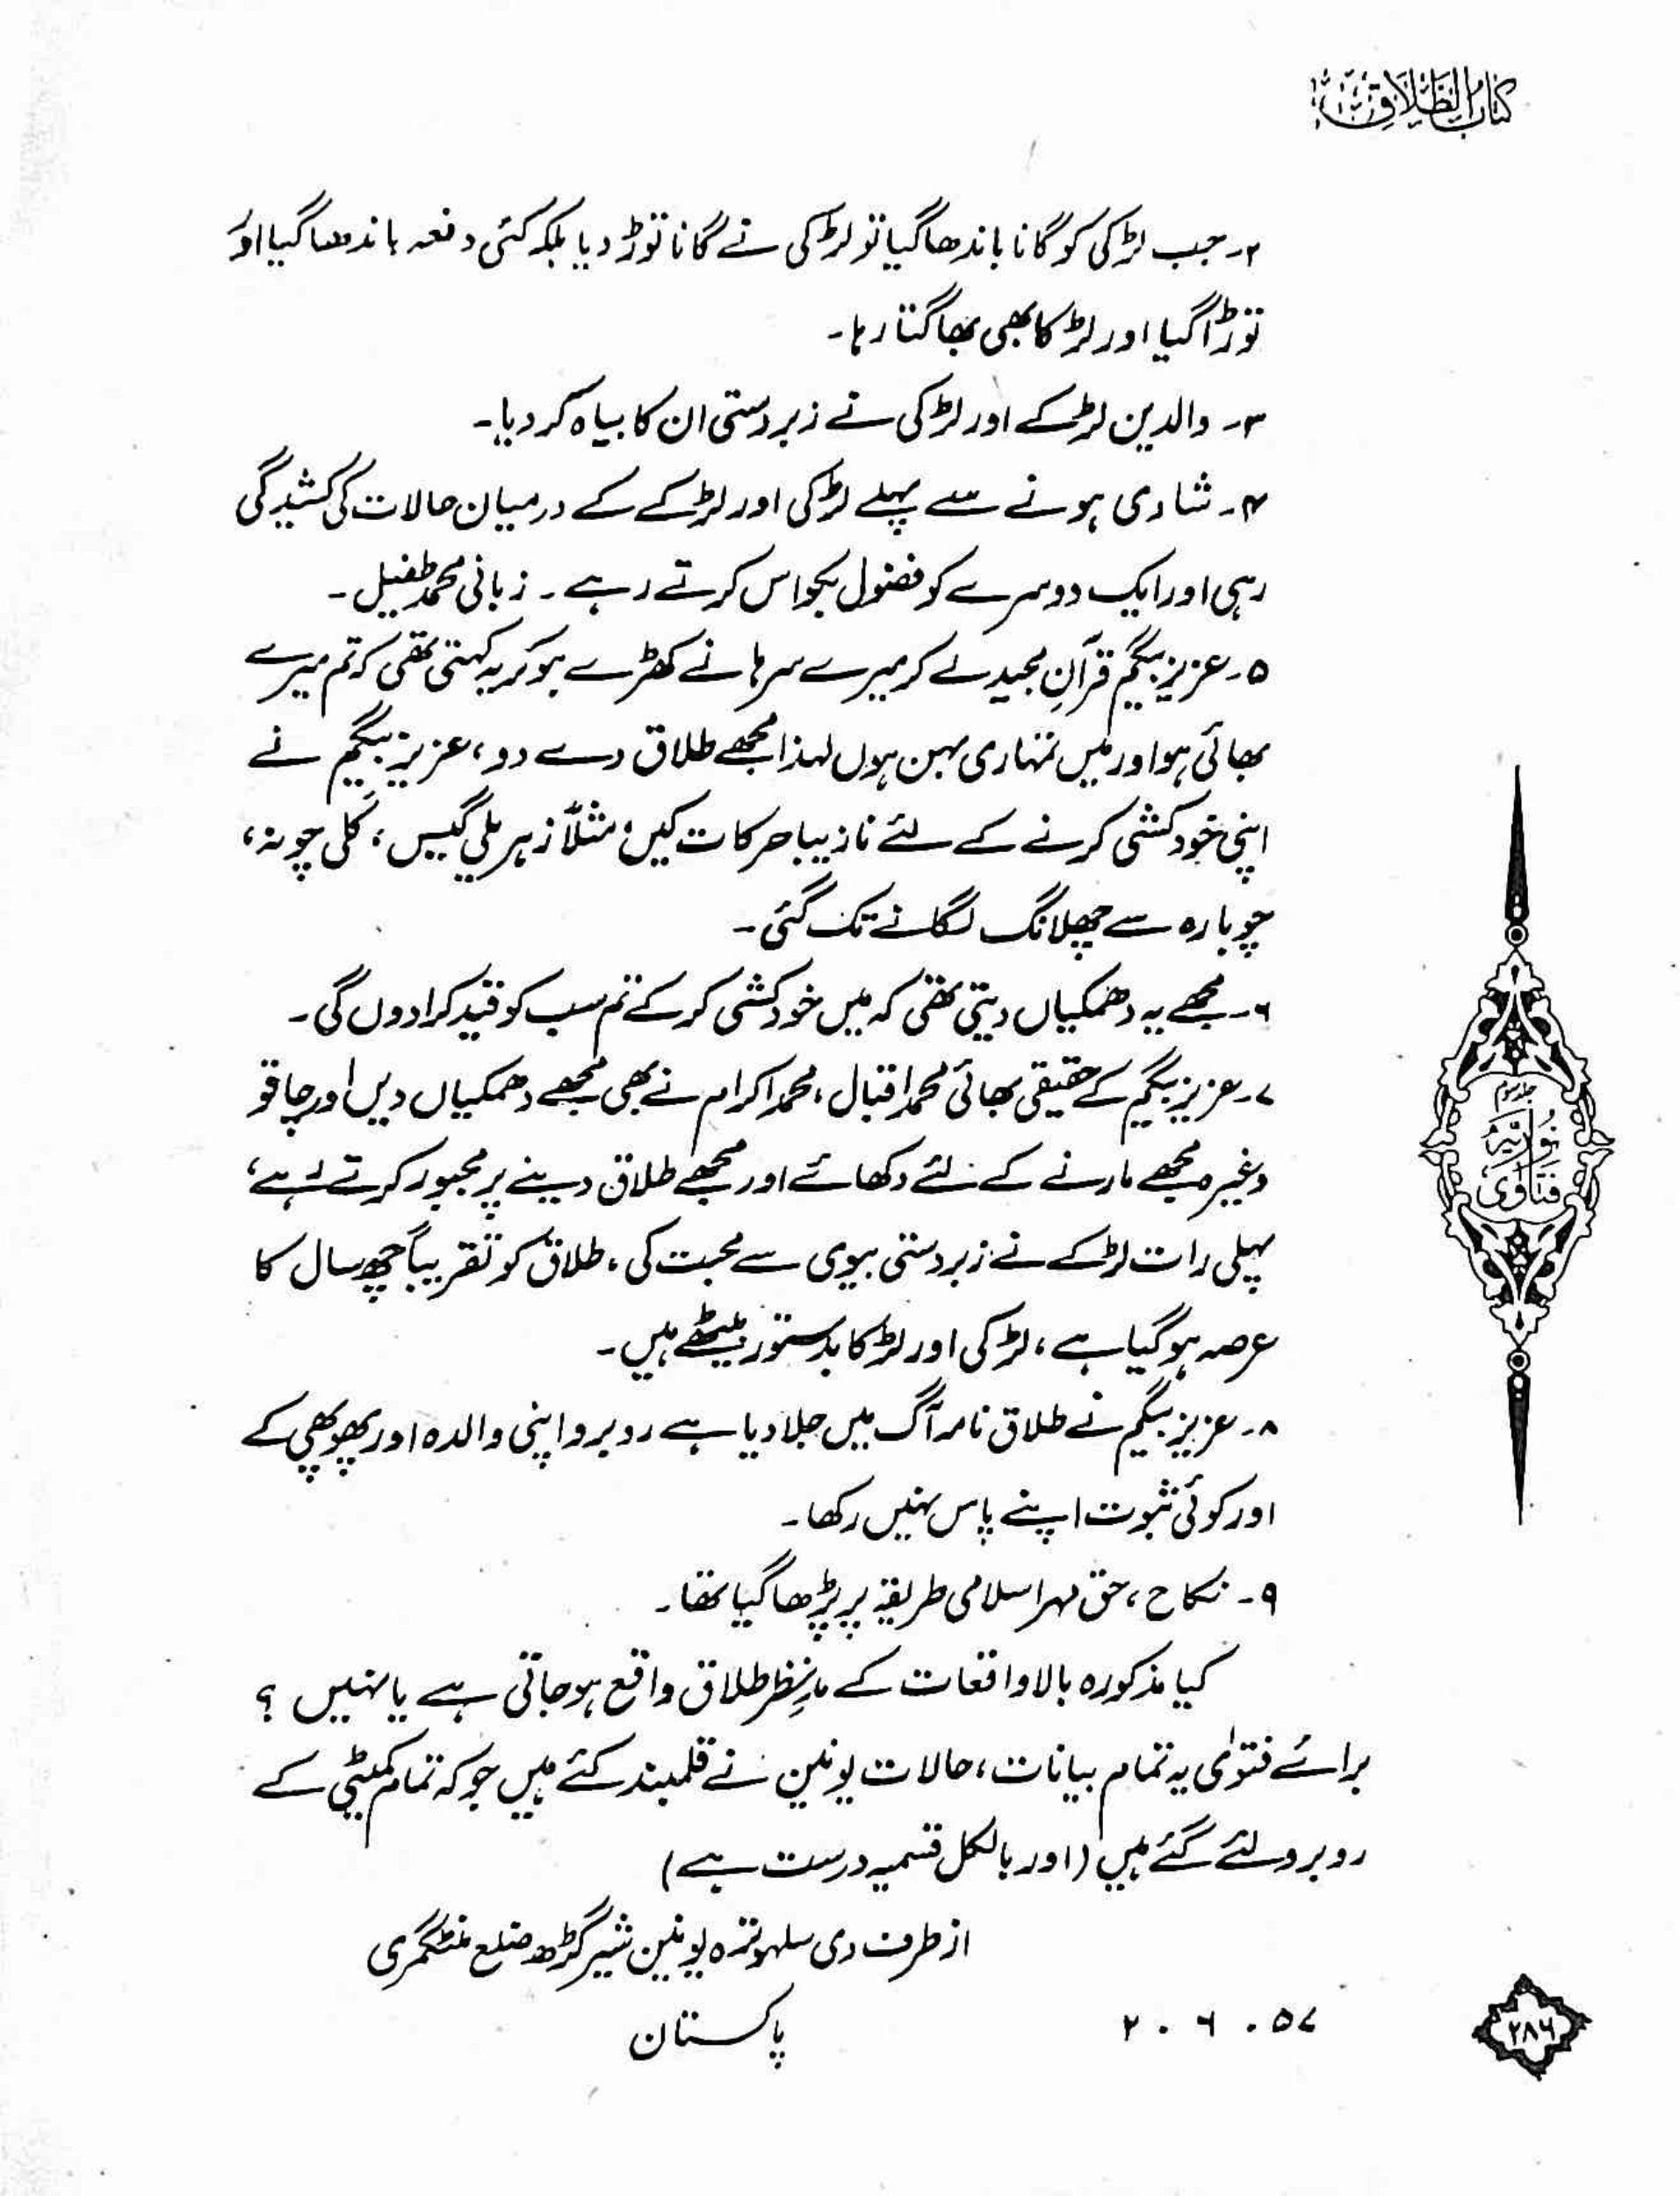 کتاب الطلاق
۲۔ جب لڑکی کو گانا باندھا گیا تو لڑکی نے گانا توڑ دیا بلکہ کئی دفعہ باندھا گیا اور
توڑا گیا اور لڑکا بھی بھاگتا رہا۔
۳۔ والدین لڑکے اور لڑکی نے زبردستی ان کا بیاہ کر دیا۔
۴۔ شادی ہونے سے پہلے لڑکی اور لڑکے کے درمیان حالات کی کشیدگی
رہی اور ایک دوسرے کو فضول بکواس کرتے رہے۔ زبانی محمد طفیل۔
۵۔ عزیز بیگم قرآنِ مجید لے کر میرے سرہانے کھڑے ہو کر یہ کہتی تھی کہ تم میرے
بھائی ہو اور میں تمہاری بہن ہوں لہذا مجھے طلاق دے دو، عزیز بیگم نے
اپنی خودکشی کرنے کے لئے نازیبا حرکات کیں، مثلاً زہریلی گیس، کلی چونہ،
چوبارہ سے چھلانگ لگانے تک گئی۔
۶۔ مجھے یہ دھمکیاں دیتی تھی کہ میں خودکشی کر کے تم سب کو قید کرا دوں گی۔
۷۔ عزیز بیگم کے حقیقی بھائی محمد اقبال، محمد اکرام نے بھی مجھے دھمکیاں دیں اور چاقو
وغیرہ مجھے مارنے کے لئے دکھائے اور مجھے طلاق دینے پر مجبور کرتے رہے،
پہلی رات لڑکے نے زبردستی بیوی سے محبت کی، طلاق کو تقریباً چھ سال کا
عرصہ ہو گیا ہے، لڑکی اور لڑکا بدستور بیٹھے ہیں۔
۸۔ عزیز بیگم نے طلاق نامہ آگ میں جلا دیا ہے روبرو اپنی والدہ اور پھوپھی کے
اور کوئی ثبوت اپنے پاس نہیں رکھا۔
۹۔ نکاح، حق مہر اسلامی طریقہ پر پڑھا گیا تھا۔
کیا مذکورہ بالا واقعات کے مدِنظر طلاق واقع ہو جاتی ہے یا نہیں ؟
برائے فتوٰی یہ تمام بیانات، حالات یونین نے قلمبند کئے ہیں جو کہ تمام کمیٹی کے
روبرو لئے گئے ہیں (اور بالکل قسمیہ درست ہے)
از طرف دی سلہوترہ یونین شیر گڑھ ضلع منٹگمری
پاکستان
۲۰.۶.۵۷
جلد سوم
فتاویٰ نوریہ
۲۸۶